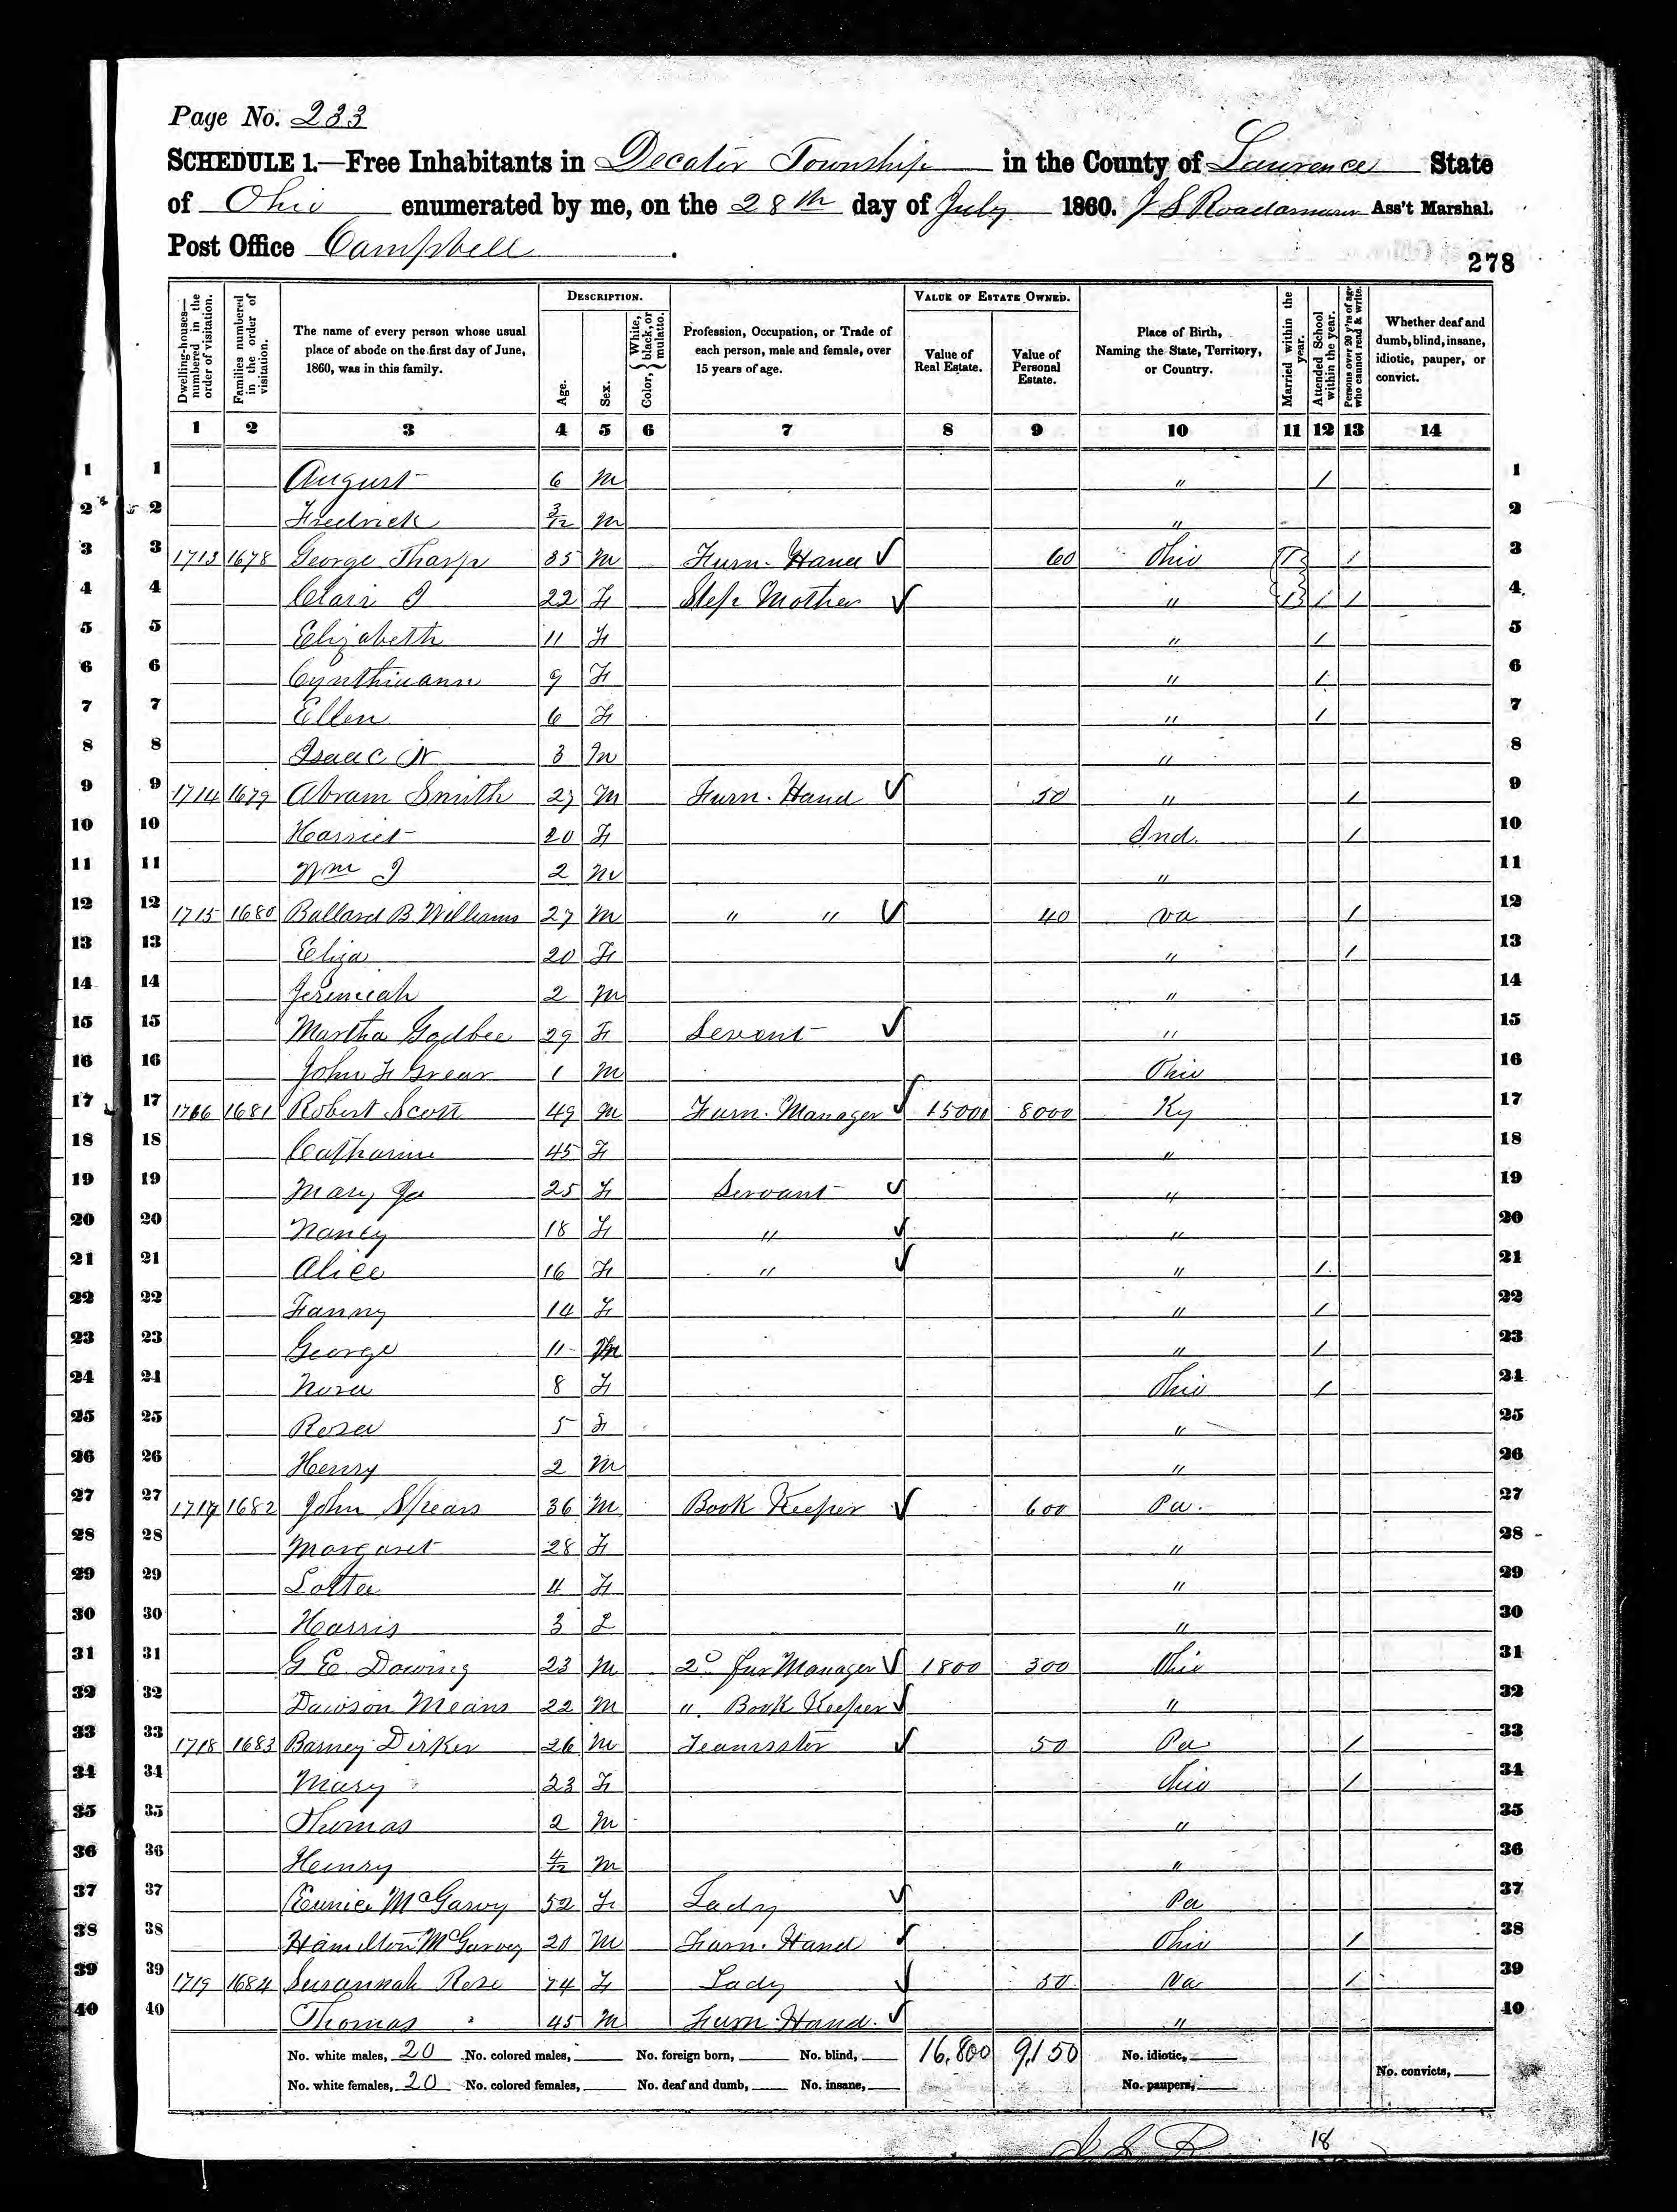 Page No. 233
SCHEDULE 1.—Free Inhabitants in Decator Township in the County of Lawrence State
of Ohio enumerated by me, on the 28th day of July 1860. J S Roadamour Ass't Marshal.
Post Office Campbell .
278
DESCRIPTION. VALUE OF ESTATE OWNED.
Dwelling-houses— numbered in the order of visitation. Families numbered in the order of visitation. The name of every person whose usual place of abode on the first day of June, 1860, was in this family. Age. Sex. Color, White, black, or mulatto. Profession, Occupation, or Trade of each person, male and female, over 15 years of age. Value of Real Estate. Value of Personal Estate. Place of Birth, Naming the State, Territory, or Country. Married within the year. Attended School within the year. Persons over 20 y'rs of age who cannot read & write. Whether deaf and dumb, blind, insane, idiotic, pauper, or convict.
1 2 3 4 5 6 7 8 9 10 11 12 13 14
1 1 August 6 M " / 1
2 2 Fredrick 3/12 M " 2
3 3 1713 1678 George Tharp 35 M Furn. Hand ✓ 60 Ohio / 3
4 4 Clair J 22 F Step Mother ✓ " / / 4
5 5 Elizabeth 11 F " / 5
6 6 Cynthiuann 9 F " / 6
7 7 Ellen 6 F " / 7
8 8 Isaac N 3 M " 8
9 9 1714 1679 Abram Smith 27 M Furn. Hand ✓ 50 " / 9
10 10 Harriet 20 F Ind. / 10
11 11 Wm J 2 M " 11
12 12 1715 1680 Ballard B. Williams 27 M " " ✓ 40 Va / 12
13 13 Eliza 20 F " / 13
14 14 Jeremiah 2 M " 14
15 15 Martha Godbee 29 F Servant ✓ " 15
16 16 John F Grear 1 M Ohio 16
17 17 1716 1681 Robert Scott 49 M Furn. Manager ✓ 15000 8000 Ky 17
18 18 Catharine 45 F " 18
19 19 Mary Ja 25 F Servant ✓ " 19
20 20 Nancy 18 F " ✓ " 20
21 21 Alice 16 F " ✓ " / 21
22 22 Fanny 14 F " / 22
23 23 George 11 M " / 23
24 24 Nora 8 F Ohio / 24
25 25 Rosa 5 F " 25
26 26 Henry 2 M " 26
27 27 1717 1682 John Spears 36 M Book Keeper ✓ 600 Pa. 27
28 28 Margaret 28 F " 28
29 29 Lotta 4 F " 29
30 30 Harris 3 " 30
31 31 G E. Dowing 23 M 2d fur Manager ✓ 1800 300 Ohio 31
32 32 Dawson Means 22 M ". Book Keeper ✓ " 32
33 33 1718 1683 Barney Dirker 26 M Teamsster ✓ 50 Pa / 33
34 34 Mary 23 F Ohio / 34
35 35 Thomas 2 M " 35
36 36 Heinry 4/12 M " 36
37 37 Eunice McGarvy 52 F Lady ✓ Pa 37
38 38 Hamilton McGarvey 20 M Furn. Hand ✓ Ohio / 38
39 39 1719 1684 Susannah Rose 74 F Lady ✓ 50 Va / 39
40 40 Thomas " 45 M Furn. Hand. ✓ " 40
No. white males, 20 No. colored males, No. foreign born, No. blind, 16,800 9,150 No. idiotic,
No. white females, 20 No. colored females, No. deaf and dumb, No. insane, No. paupers, No. convicts,
J S R 18